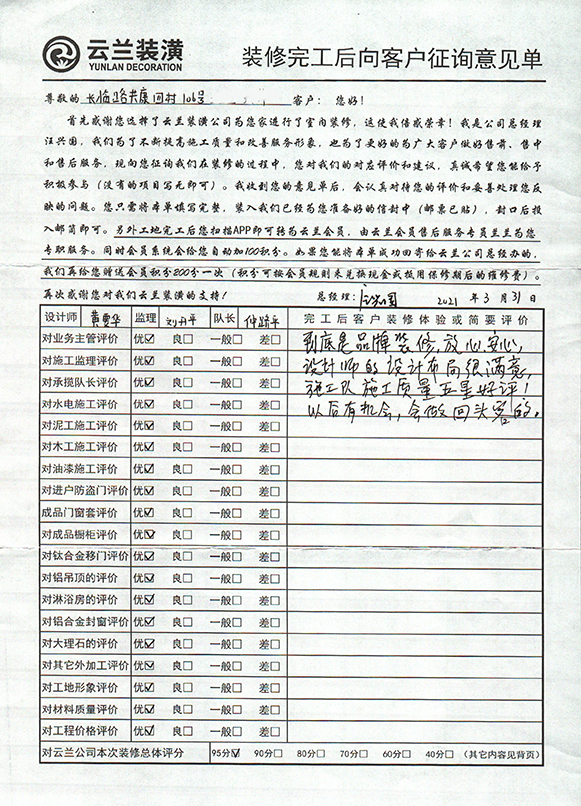 云兰装潢
YUNLAN DECORATION
装修完工后向客户征询意见单
尊敬的 长临路共康四村106号 客户： 您好！
首先感谢您选择了云兰装潢公司为您家进行了室内装修，这使我倍感荣幸！我是公司总经理
汪兴国，我们为了不断提高施工质量和改善服务形象，也为了更好的为广大客户做好售前、售中
和售后服务，现向您征询我们在装修的过程中，您对我们的对应评价和建议，真诚希望您能给予
积极参与（没有的项目写无即可）。我收到您的意见单后，会认真对待您的评价和妥善处理您反
映的问题。您只需将本单填写完整，装入我们已经为您准备好的信封中（邮票已贴），封口后投
入邮筒即可。另外工地完工后您扫描APP即可转为云兰会员，由云兰会员售后服务专员兰兰为您
专职服务。同时会员系统会给您自动加100积分。如果您能将本单成功回寄给云兰公司总经办的，
我们再给您赠送会员积分200分一次（积分可按会员规则来兑换现金或抵用保修期后的维修费）。
再次感谢您对我们云兰装潢的支持！ 总经理： 2021 年 3 月 31 日
设计师 黄雯华 监理 刘丹平 队长 仲跻平 完工后客户装修体验或简要评价
对业务主管评价 优☑ 良□ 一般□ 差□ 到底是品牌装修，放心安心，
对施工监理评价 优☑ 良□ 一般□ 差□ 设计师的设计布局很满意，
对承揽队长评价 优☑ 良□ 一般□ 差□ 施工队施工质量五星好评！
对水电施工评价 优☑ 良□ 一般□ 差□ 以后有机会，会做回头客的。
对泥工施工评价 优☑ 良□ 一般□ 差□
对木工施工评价 优☑ 良□ 一般□ 差□
对油漆施工评价 优☑ 良□ 一般□ 差□
对进户防盗门评价 优☑ 良□ 一般□ 差□
成品门窗套评价 优☑ 良□ 一般□ 差□
对成品橱柜评价 优☑ 良□ 一般□ 差□
对钛合金移门评价 优☑ 良□ 一般□ 差□
对铝吊顶的评价 优☑ 良□ 一般□ 差□
对淋浴房的评价 优☑ 良□ 一般□ 差□
对铝合金封窗评价 优☑ 良□ 一般□ 差□
对大理石的评价 优☑ 良□ 一般□ 差□
对其它外加工评价 优☑ 良□ 一般□ 差□
对工地形象评价 优☑ 良□ 一般□ 差□
对材料质量评价 优☑ 良□ 一般□ 差□
对工程价格评价 优☑ 良□ 一般□ 差□
对云兰公司本次装修总体评分 95分☑ 90分□ 80分□ 70分□ 60分□ 40分□ （其它内容见背页）